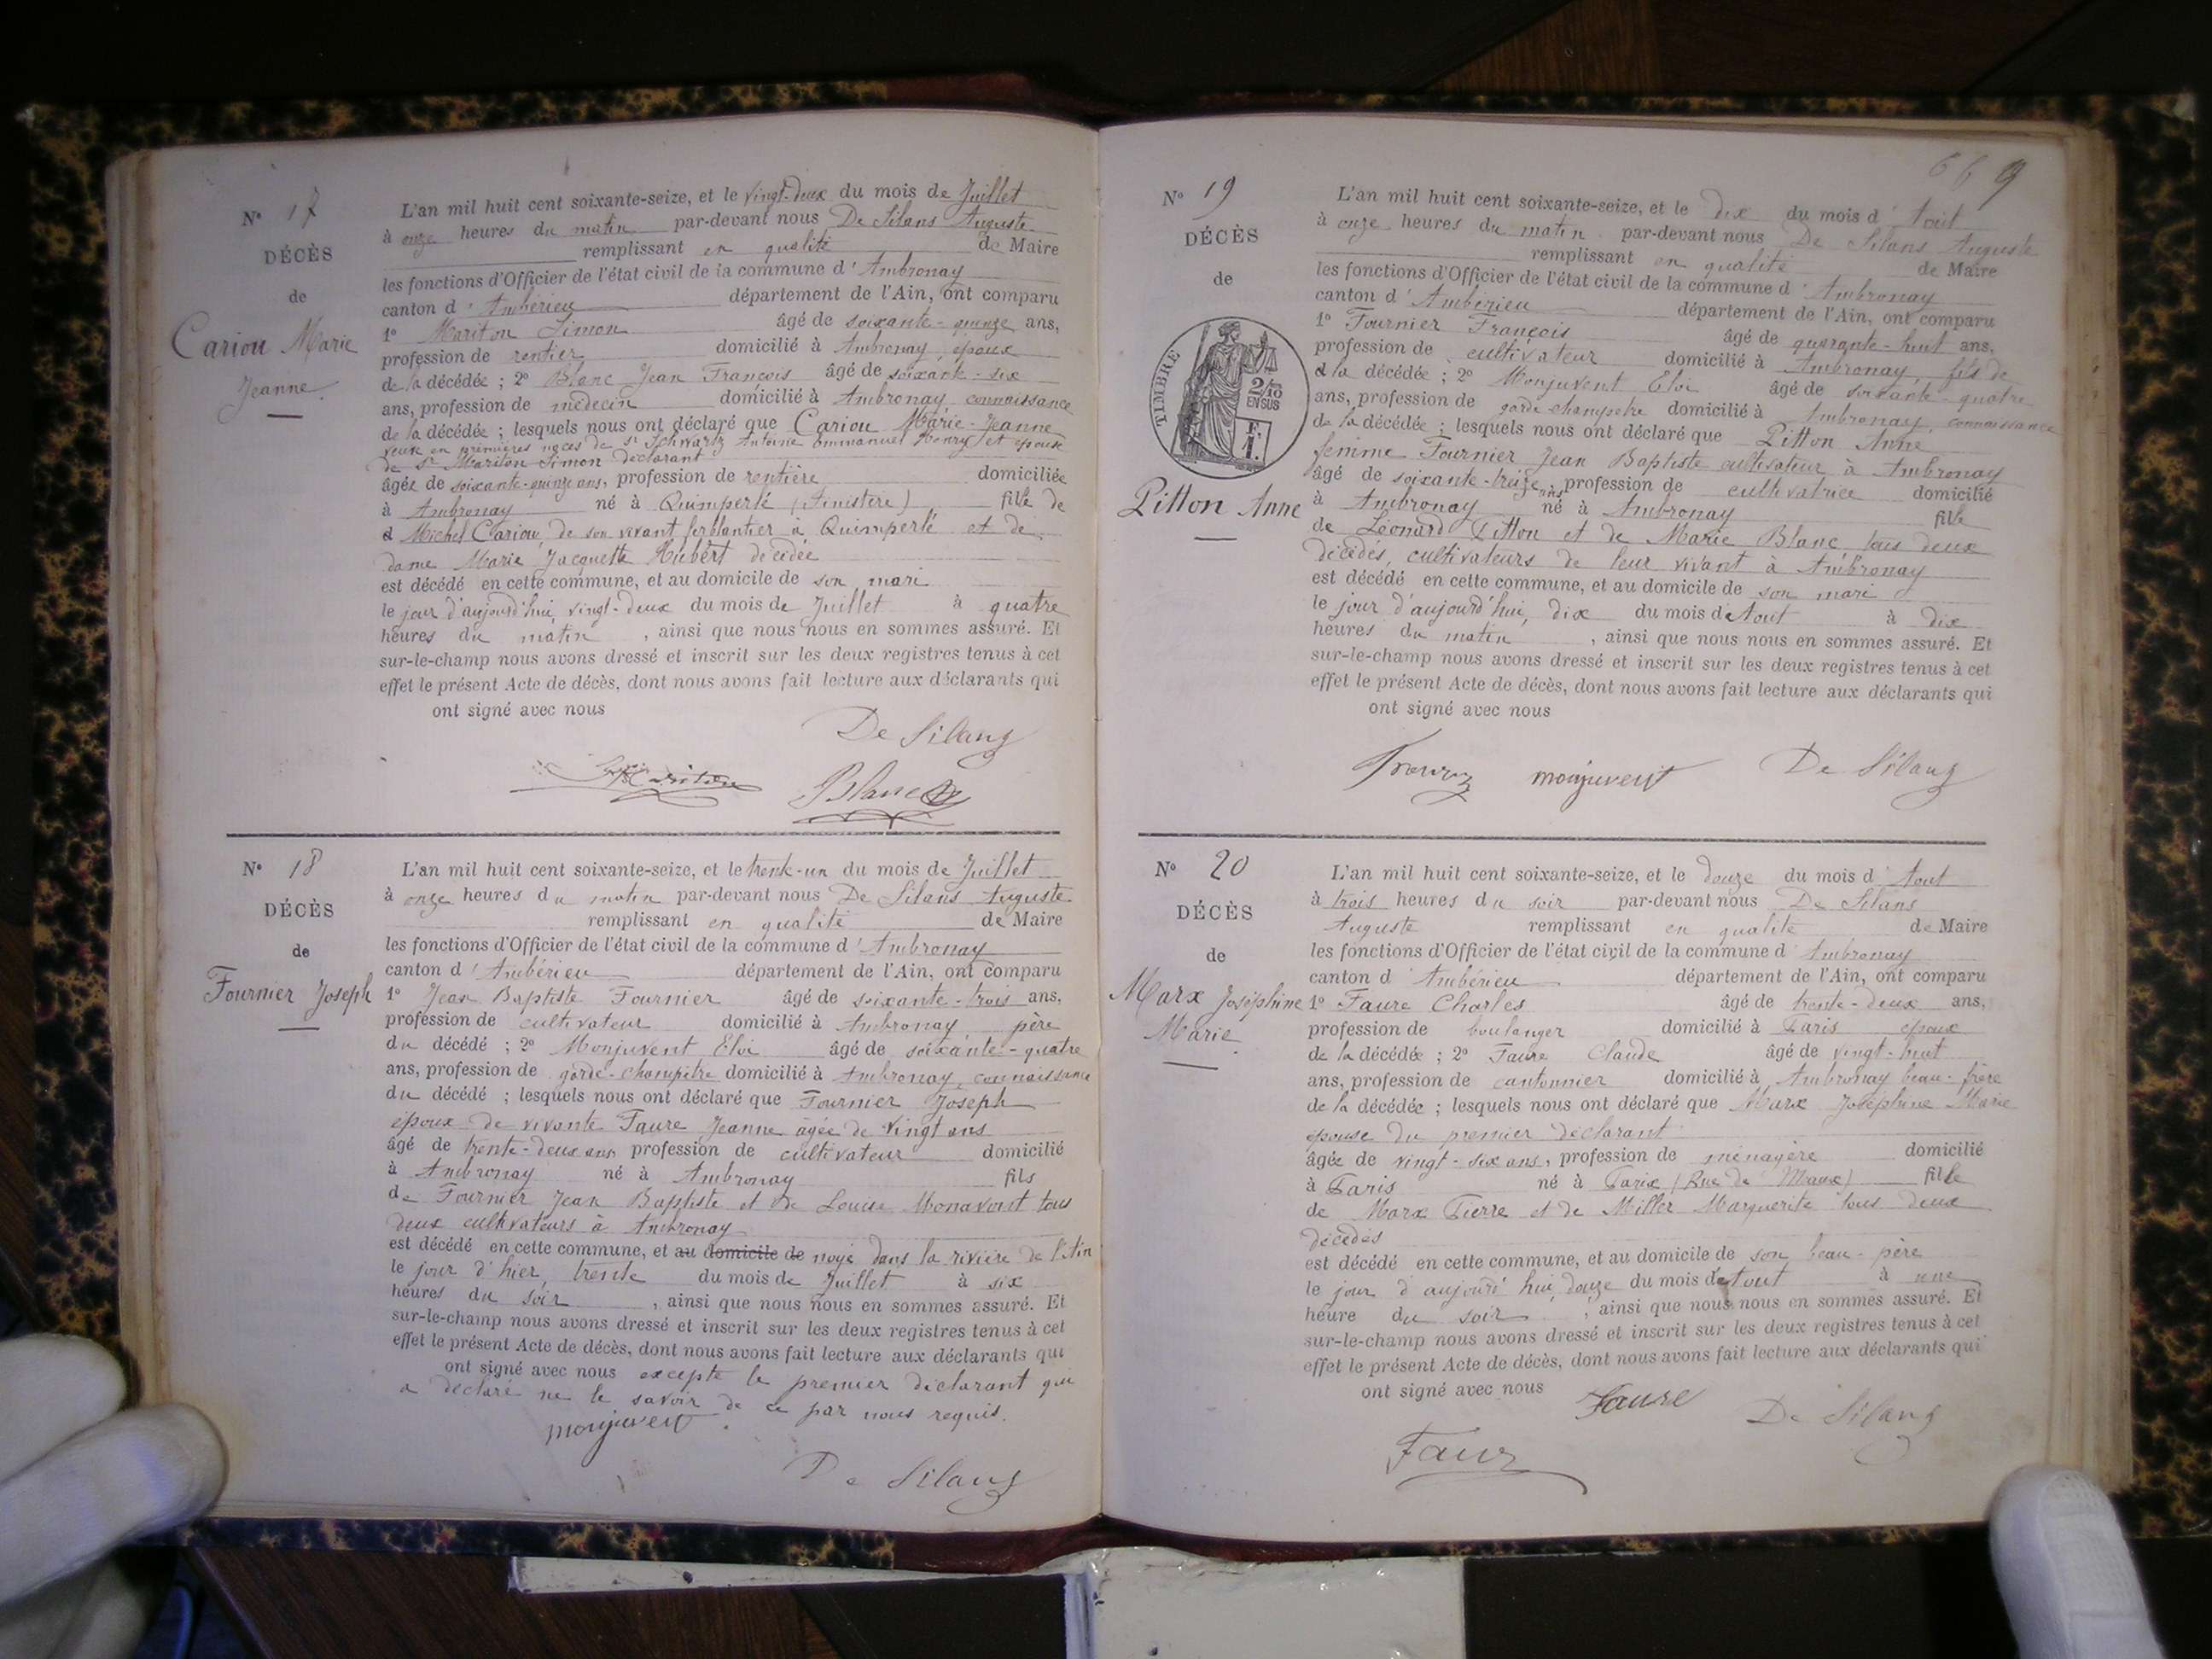 N° 17
DÉCÈS
de
Cariou Marie
Jeanne
L'an mil huit cent soixante-seize, et le vingt-deux du mois de Juillet
à onze heures du matin par-devant nous De Silans Auguste
remplissant en qualité de Maire
les fonctions d'Officier de l'état civil de la commune d'Ambronay
canton d'Ambérieu département de l'Ain, ont comparu
1° Mariton Simon âgé de soixante-quinze ans,
profession de rentier domicilié à Ambronay, époux
de la décédée ; 2° Blanc Jean François âgé de soixante-six
ans, profession de médecin domicilié à Ambronay connaissance
de la décédée ; lesquels nous ont déclaré que Cariou Marie-Jeanne
veuve en premières noces de Sr Schwartz Antoine Emmanuel Henry et épouse
de Sr Mariton Simon déclarant
âgée de soixante-quinze ans, profession de rentière domiciliée
à Ambronay né à Quimperlé (Finistère) fille de
d Michel Cariou, de son vivant ferblantier à Quimperlé et de
dame Marie Jacquette Hubert décédée
est décédé en cette commune, et au domicile de son mari
le jour d'aujourd'hui, vingt-deux du mois de Juillet à quatre
heures du matin, ainsi que nous nous en sommes assuré. Et
sur-le-champ nous avons dressé et inscrit sur les deux registres tenus à cet
effet le présent Acte de décès, dont nous avons fait lecture aux déclarants qui
ont signé avec nous
De Silans
Mariton Blanc
N° 18
DÉCÈS
de
Fournier Joseph
L'an mil huit cent soixante-seize, et le trente-un du mois de Juillet
à onze heures du matin par-devant nous De Silans Auguste
remplissant en qualité de Maire
les fonctions d'Officier de l'état civil de la commune d'Ambronay
canton d'Ambérieu département de l'Ain, ont comparu
1° Jean Baptiste Fournier âgé de soixante-trois ans,
profession de cultivateur domicilié à Ambronay père
du décédé ; 2° Monjuvent Eloi âgé de soixante-quatre
ans, profession de garde-champêtre domicilié à Ambronay, connaissance
du décédé ; lesquels nous ont déclaré que Fournier Joseph
époux de vivante Faure Jeanne agée de vingt ans
âgé de trente-deux ans profession de cultivateur domicilié
à Ambronay né à Ambronay fils
de Fournier Jean Baptiste et de Louise Monavont tous
deux cultivateurs à Ambronay
est décédé en cette commune, et au domicile de noyé dans la rivière de l'Ain
le jour d'hier, trente du mois de Juillet à six
heures du soir, ainsi que nous nous en sommes assuré. Et
sur-le-champ nous avons dressé et inscrit sur les deux registres tenus à cet
effet le présent Acte de décès, dont nous avons fait lecture aux déclarants qui
ont signé avec nous excepte le premier déclarant qui
a déclaré ne le savoir de ce par nous requis.
monjuvent
De Silans
669
N° 19
DÉCÈS
de
TIMBRE
2/10
EN SUS
Pitton Anne
L'an mil huit cent soixante-seize, et le dix du mois d'Aout
à onze heures du matin par-devant nous De Silans Auguste
remplissant en qualité de Maire
les fonctions d'Officier de l'état civil de la commune d'Ambronay
canton d'Ambérieu département de l'Ain, ont comparu
1° Fournier François âgé de quarante-huit ans,
profession de cultivateur domicilié à Ambronay fils de
d la décédée ; 2° Monjuvent Eloi âgé de soixante-quatre
ans, profession de garde-champetre domicilié à Ambronay, connaissance
de la décédée ; lesquels nous ont déclaré que Pitton Anne
femme Fournier Jean Baptiste cultivateur à Ambronay
âgé de soixante-treize ans, profession de cultivatrice domicilié
à Ambronay né à Ambronay fille
de Léonard Pitton et de Marie Blanc tous deux
décédés, cultivateurs de leur vivant à Ambronay
est décédé en cette commune, et au domicile de son mari
le jour d'aujourd'hui, dix du mois d'Aout à dix
heures du matin, ainsi que nous nous en sommes assuré. Et
sur-le-champ nous avons dressé et inscrit sur les deux registres tenus à cet
effet le présent Acte de décès, dont nous avons fait lecture aux déclarants qui
ont signé avec nous
monjuvent De Silans
N° 20
DÉCÈS
de
Marx Joséphine
Marie
L'an mil huit cent soixante-seize, et le douze du mois d'Aout
à trois heures du soir par-devant nous De Silans
Auguste remplissant en qualité de Maire
les fonctions d'Officier de l'état civil de la commune d'Ambronay
canton d'Ambérieu département de l'Ain, ont comparu
1° Faure Charles âgé de trente-deux ans,
profession de boulanger domicilié à Paris époux
de la décédée ; 2° Faure Claude âgé de vingt-huit
ans, profession de cantonnier domicilié à Ambronay beau-frère
de la décédée ; lesquels nous ont déclaré que Marx Joséphine Marie
épouse du premier déclarant
âgée de vingt-six ans, profession de ménagère domicilié
à Paris né à Paris (Rue de Meaux) fille
de Marx Pierre et de Miller Marguerite tous deux
décédés
est décédé en cette commune, et au domicile de son beau-père
le jour d'aujourd'hui, douze du mois d'Aout à une
heure du soir, ainsi que nous nous en sommes assuré. Et
sur-le-champ nous avons dressé et inscrit sur les deux registres tenus à cet
effet le présent Acte de décès, dont nous avons fait lecture aux déclarants qui
ont signé avec nous Faure
De Silans
Faure